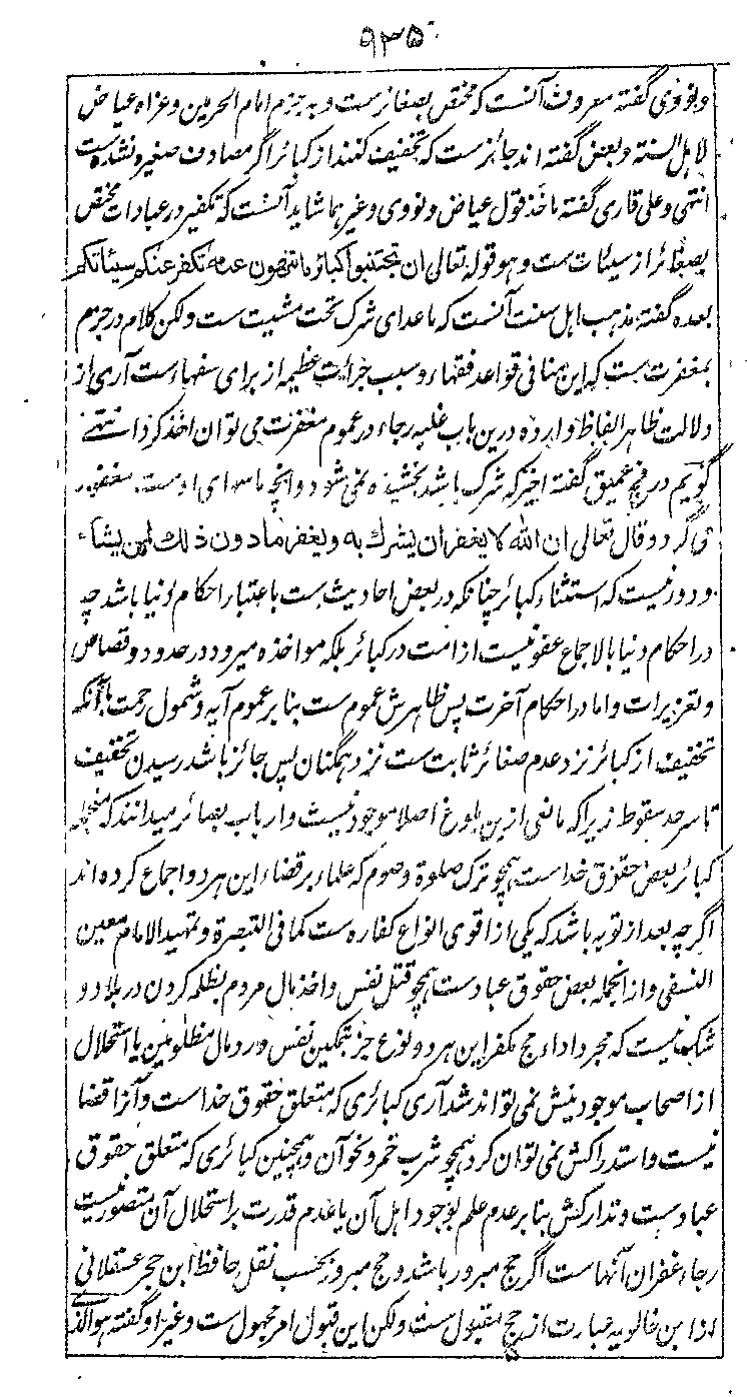 ۹۳۵
ونووی گفته معروف آنست که مختص بصغائرست و به جزم امام الحرمین وعزاه عیاض
لاهل السنة وبعض گفته اند جائزست که تخفیف کنند از کبائر اگر مصادف صغیره نشده ست
انتهی وعلی قاری گفته ماخذ قول عیاض ونووی وغیرهما شاید آنست که تکفیر در عبادات مختص
بصغائر از سیئات ست وهو قوله تعالی ان تجتنبوا کبائر ما تنهون عنه نکفر عنکم سیئاتکم
بعده گفته مذهب اهل سنت آنست که ماعدای شرک تحت مشیت ست ولکن کلام در جزم
بمغفرت ست که این منافی قواعد فقهاء وسبب جرائت عظیمه از برای سفهاءست آری از
دلالت ظاهر الفاظ وارده درین باب غلبه رجاء در عموم مغفرت می توان اخذ کرد انتهے
گویم در فج عمیق گفته اخیر که شرک باشد بخشیده نمی شود وانچه ماسوای اوست مغفور
می گردد قال تعالی ان الله لا یغفر ان یشرك به ویغفر ما دون ذلك لمن یشاء
ودور نیست که استثناء کبائر چنانکه در بعض احادیث ست باعتبار احکام دنیا باشد چه
در احکام دنیا بالاجماع عفو نیست از امت در کبائر بلکه مواخذه میرود در حدود وقصاص
وتعزیرات واما در احکام آخرت پس ظاهرش عموم ست بنا بر عموم آیه وشمول رحمت باآنکه
تخفیف از کبائر نزد عدم صغائر ثابت ست نزد همگنان پس جائز باشد رسیدن تخفیف
تا سرحد سقوط زیرا که مانعی ازین بلوغ اصلا موجود نیست وارباب بصائر میدانند که منجمله
کبائر بعض حقوق خداست همچو ترک صلوة وصوم که علماء بر قضاء این هر دو اجماع کرده اند
اگرچه بعد از توبه باشد که یکی از اقوی انواع کفاره ست کما فی التبصرة وتمهید الامام معین
النسفی وازانجمله بعض حقوق عبادست همچو قتل نفس واخذ مال مردم بظلم کردن در بلاد و
شک نیست که مجرد اداء حج مکفر این هر دو نوع جز بتمکین نفس ورد مال مظلومین یا استحلال
از اصحاب موجودینش نمی تواند شد آری کبائری که متعلق حقوق خداست وآنرا قضا
نیست واستدراکش نمی توان کرد همچو شرب خمر ونحو آن وهمچنین کبائری که متعلق حقوق
عبادست وتدارکش بنا بر عدم علم بوجود اهل آن یا عدم قدرت بر استحلال آن متصور نیست
رجاء غفران آنهاست اگر حج مبرور باشد وحج مبرور بحسب نقل حافظ ابن حجر عسقلانی
از ابن خالویه عبارت از حج مقبول ست ولکن این قبول امر مجهول ست وغیر او گفته هو الذی